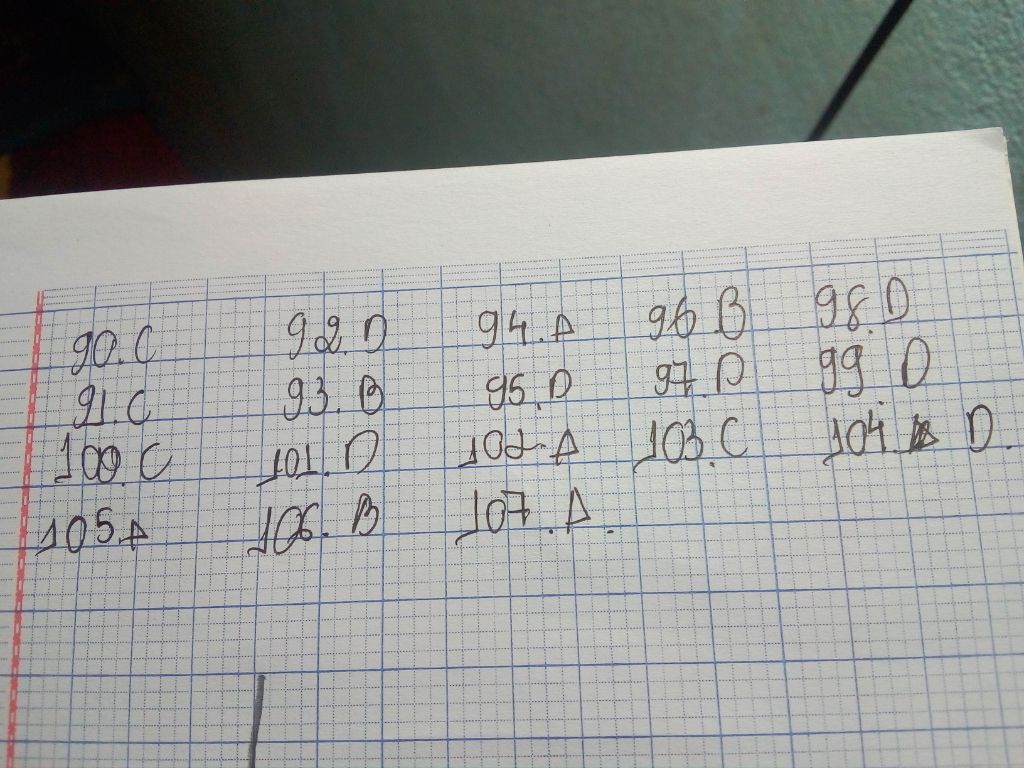 90.C 92.D 94.A 96 B 98.D
91.C 93.B 95.D 97.D 99.D
100.C 101.D 102.A 103.C 104. D.
105.A 106.B 107.A.